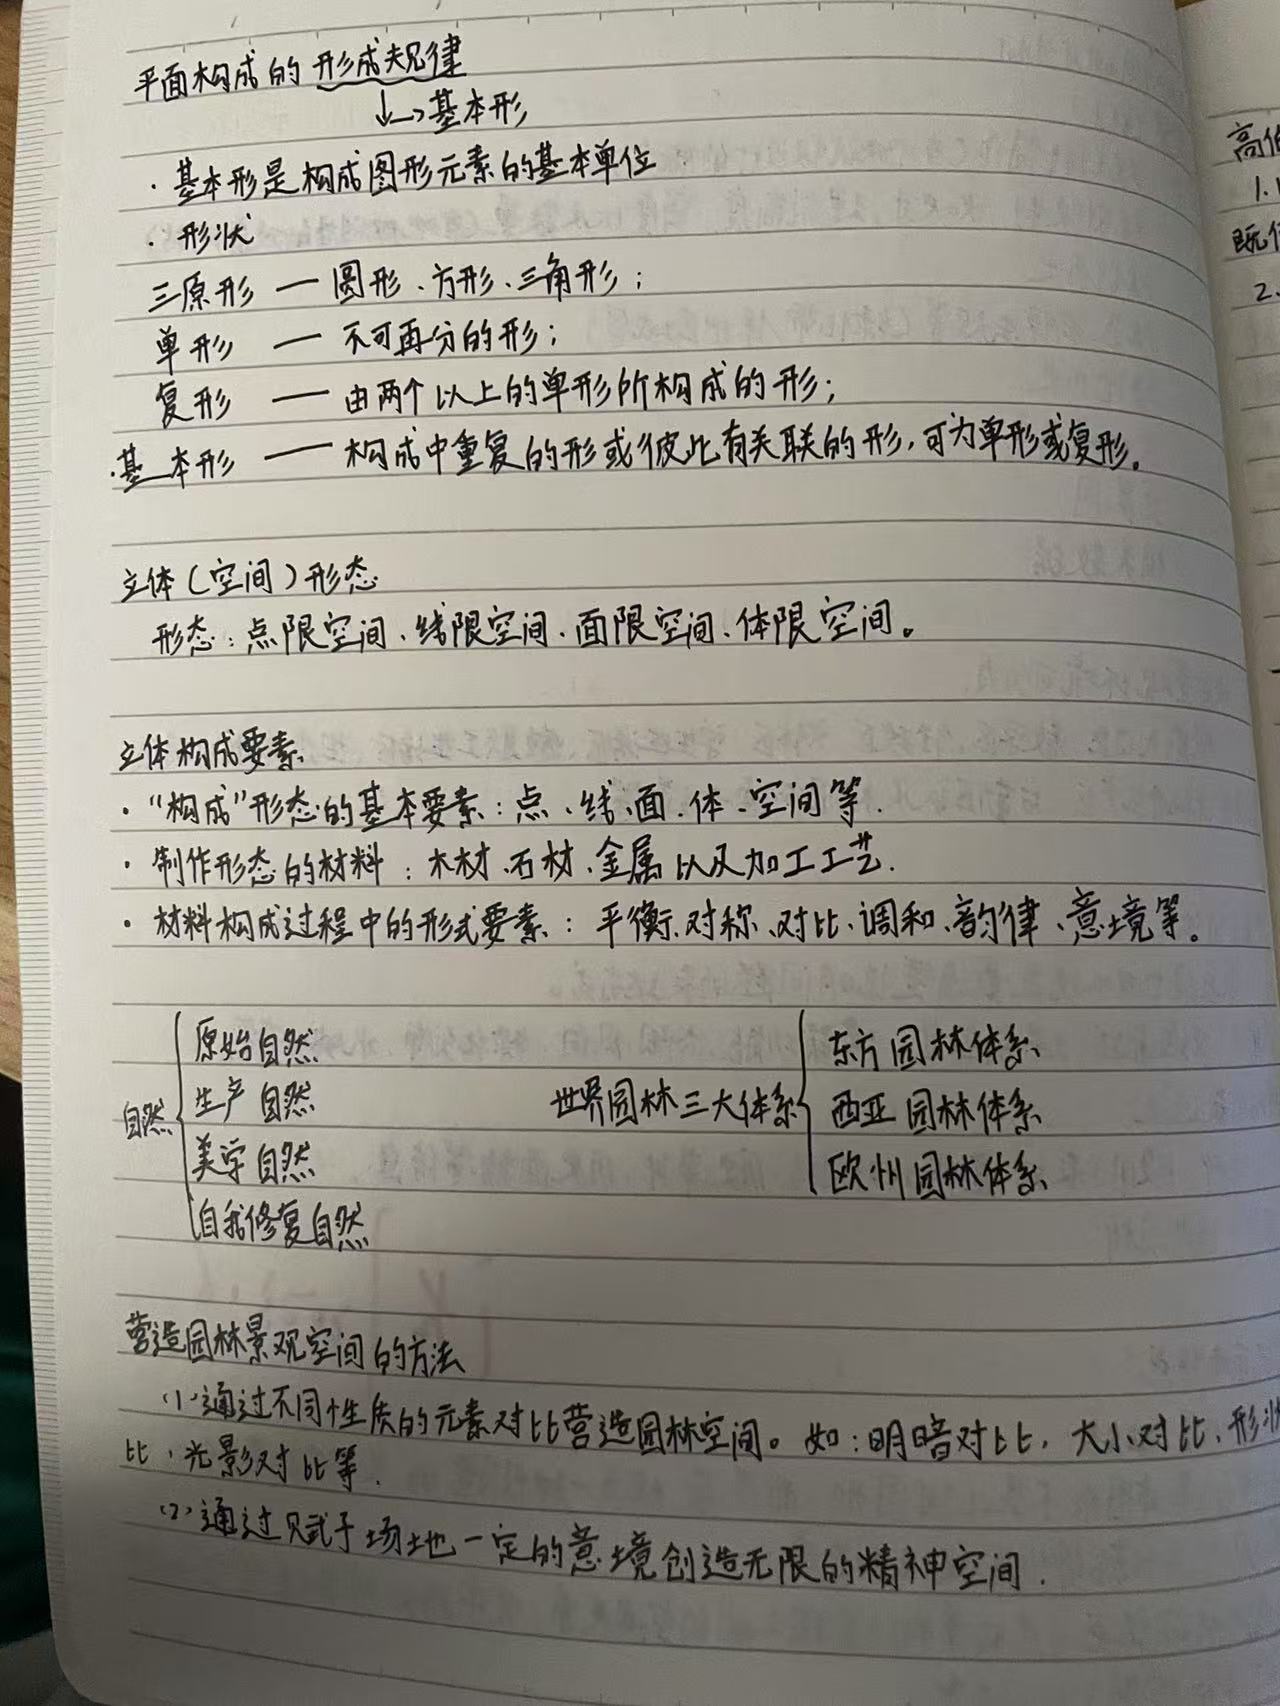 平面构成的形成规律
↓→基本形
·基本形是构成图形元素的基本单位
·形状
三原形 — 圆形、方形、三角形；
单形 — 不可再分的形；
复形 — 由两个以上的单形所构成的形；
·基本形 — 构成中重复的形或彼此有关联的形，可为单形或复形。
立体（空间）形态
形态：点限空间、线限空间、面限空间、体限空间。
立体构成要素
·“构成”形态的基本要素：点、线、面、体、空间等.
·制作形态的材料：木材、石材、金属以及加工工艺.
·材料构成过程中的形式要素：平衡、对称、对比、调和、韵律、意境等。
自然
原始自然
生产自然
美学自然
自我修复自然
世界园林三大体系
东方园林体系
西亚园林体系
欧州园林体系
营造园林景观空间的方法
(1)通过不同性质的元素对比营造园林空间。如：明暗对比，大小对比、形状
比，光影对比等.
(2)通过赋予场地一定的意境创造无限的精神空间.
高
1.
既
2.